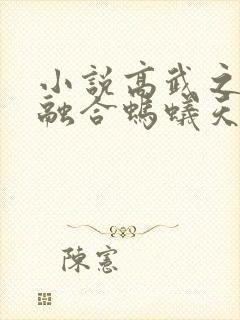 小說高武之
融合螞蟻天
陳憲